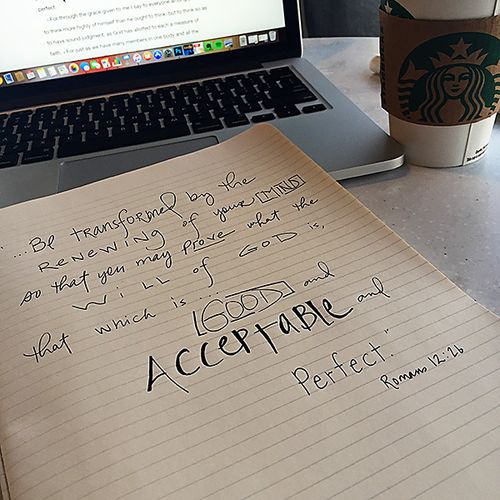 perfect.
3 For through the grace given to me I say to everyone among you
to think more highly of himself than he ought to think; but to think so as
to have sound judgment, as God has allotted to each a measure of
faith. 4 For just as we have many members in one body and all the
...Be transformed by the
RENEWING of your MIND
so that you may prove what the
WiLL of GOD is,
that which is... GOOD and
ACCEPTABLE and
Perfect."
Romans 12:2b